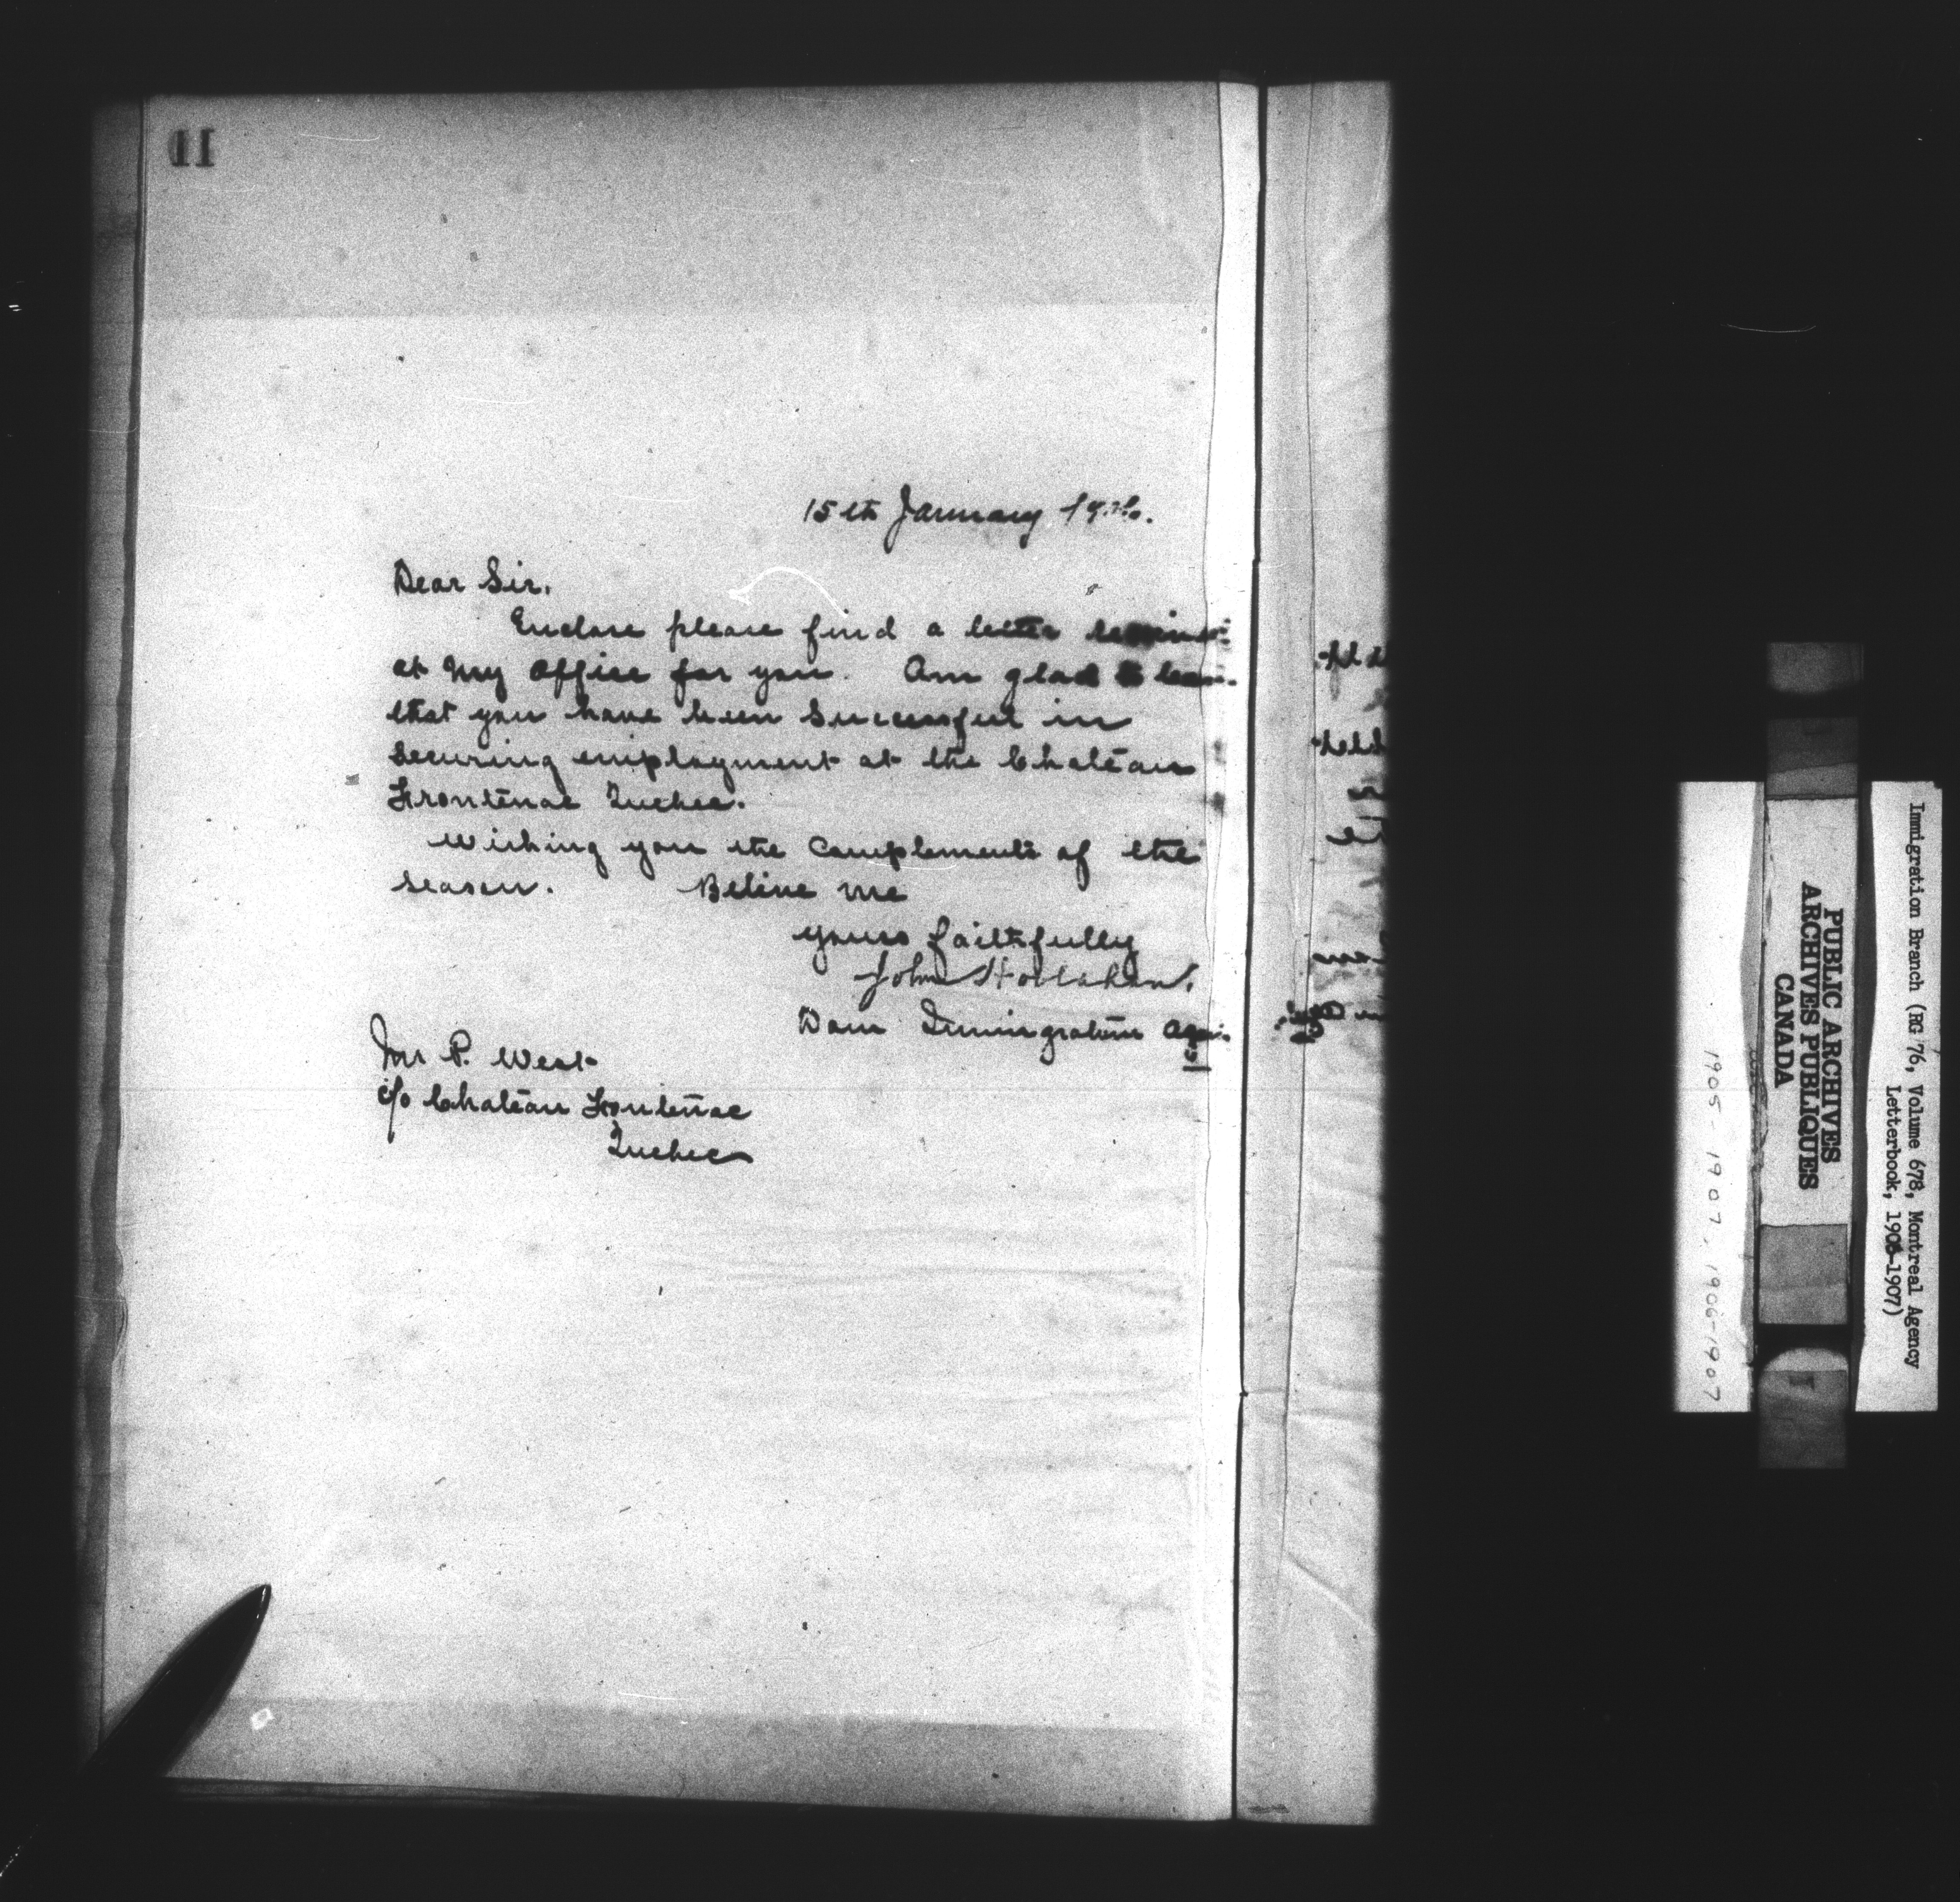 11
15th January 190
Dear Sir.
Enclose please find a letter
at My Office for you. Am glad to learn
that you have been Successful in
securing employment at the Chateau
Frontenac Quebec.
Wishing you the Complements of the
season. Believe me
yours faithfully
John Hoolahan.
Dom Immigration Agent
Mr P. West
c/o Chateau Frontenac
Quebec
Immigration Branch (RG 76, Volume 678, Montreal Agency
Letterbook, 1905-1907)
PUBLIC ARCHIVES
ARCHIVES PUBLIQUES
CANADA
1905-1907, 1906-1907